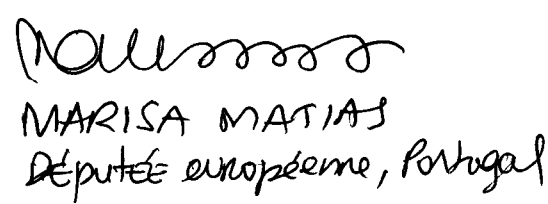 MARISA MATIAS
Députée européenne, Portugal